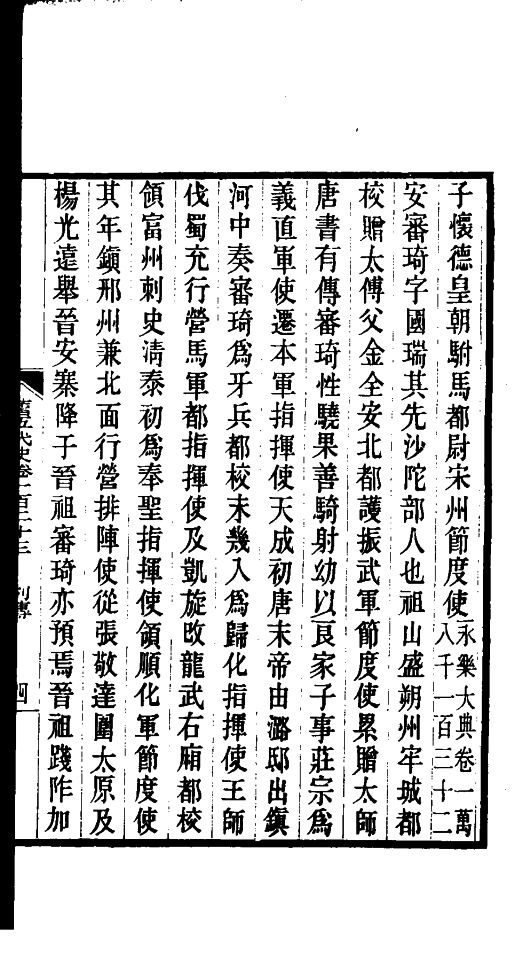 子懷德皇朝駙馬都尉宋州節度使永樂大典卷一萬八千一百三十二
安審琦字國瑞其先沙陀部人也祖山盛朔州牢城都
校贈太傅父金全安北都護振武軍節度使累贈太師
唐書有傳審琦性驍果善騎射幼以良家子事莊宗爲
義直軍使遷本軍指揮使天成初唐末帝由潞邸出鎭
河中奏審琦爲牙兵都校未幾入爲歸化指揮使王師
伐蜀充行營馬軍都指揮使及凱旋改龍武右廂都校
領富州刺史淸泰初爲奉聖指揮使領順化軍節度使
其年鎭邢州兼北面行營排陣使從張敬達圍太原及
楊光遠舉晉安寨降于晉祖審琦亦預焉晉祖踐阼加
舊五代史卷一百二十三 列傳 四